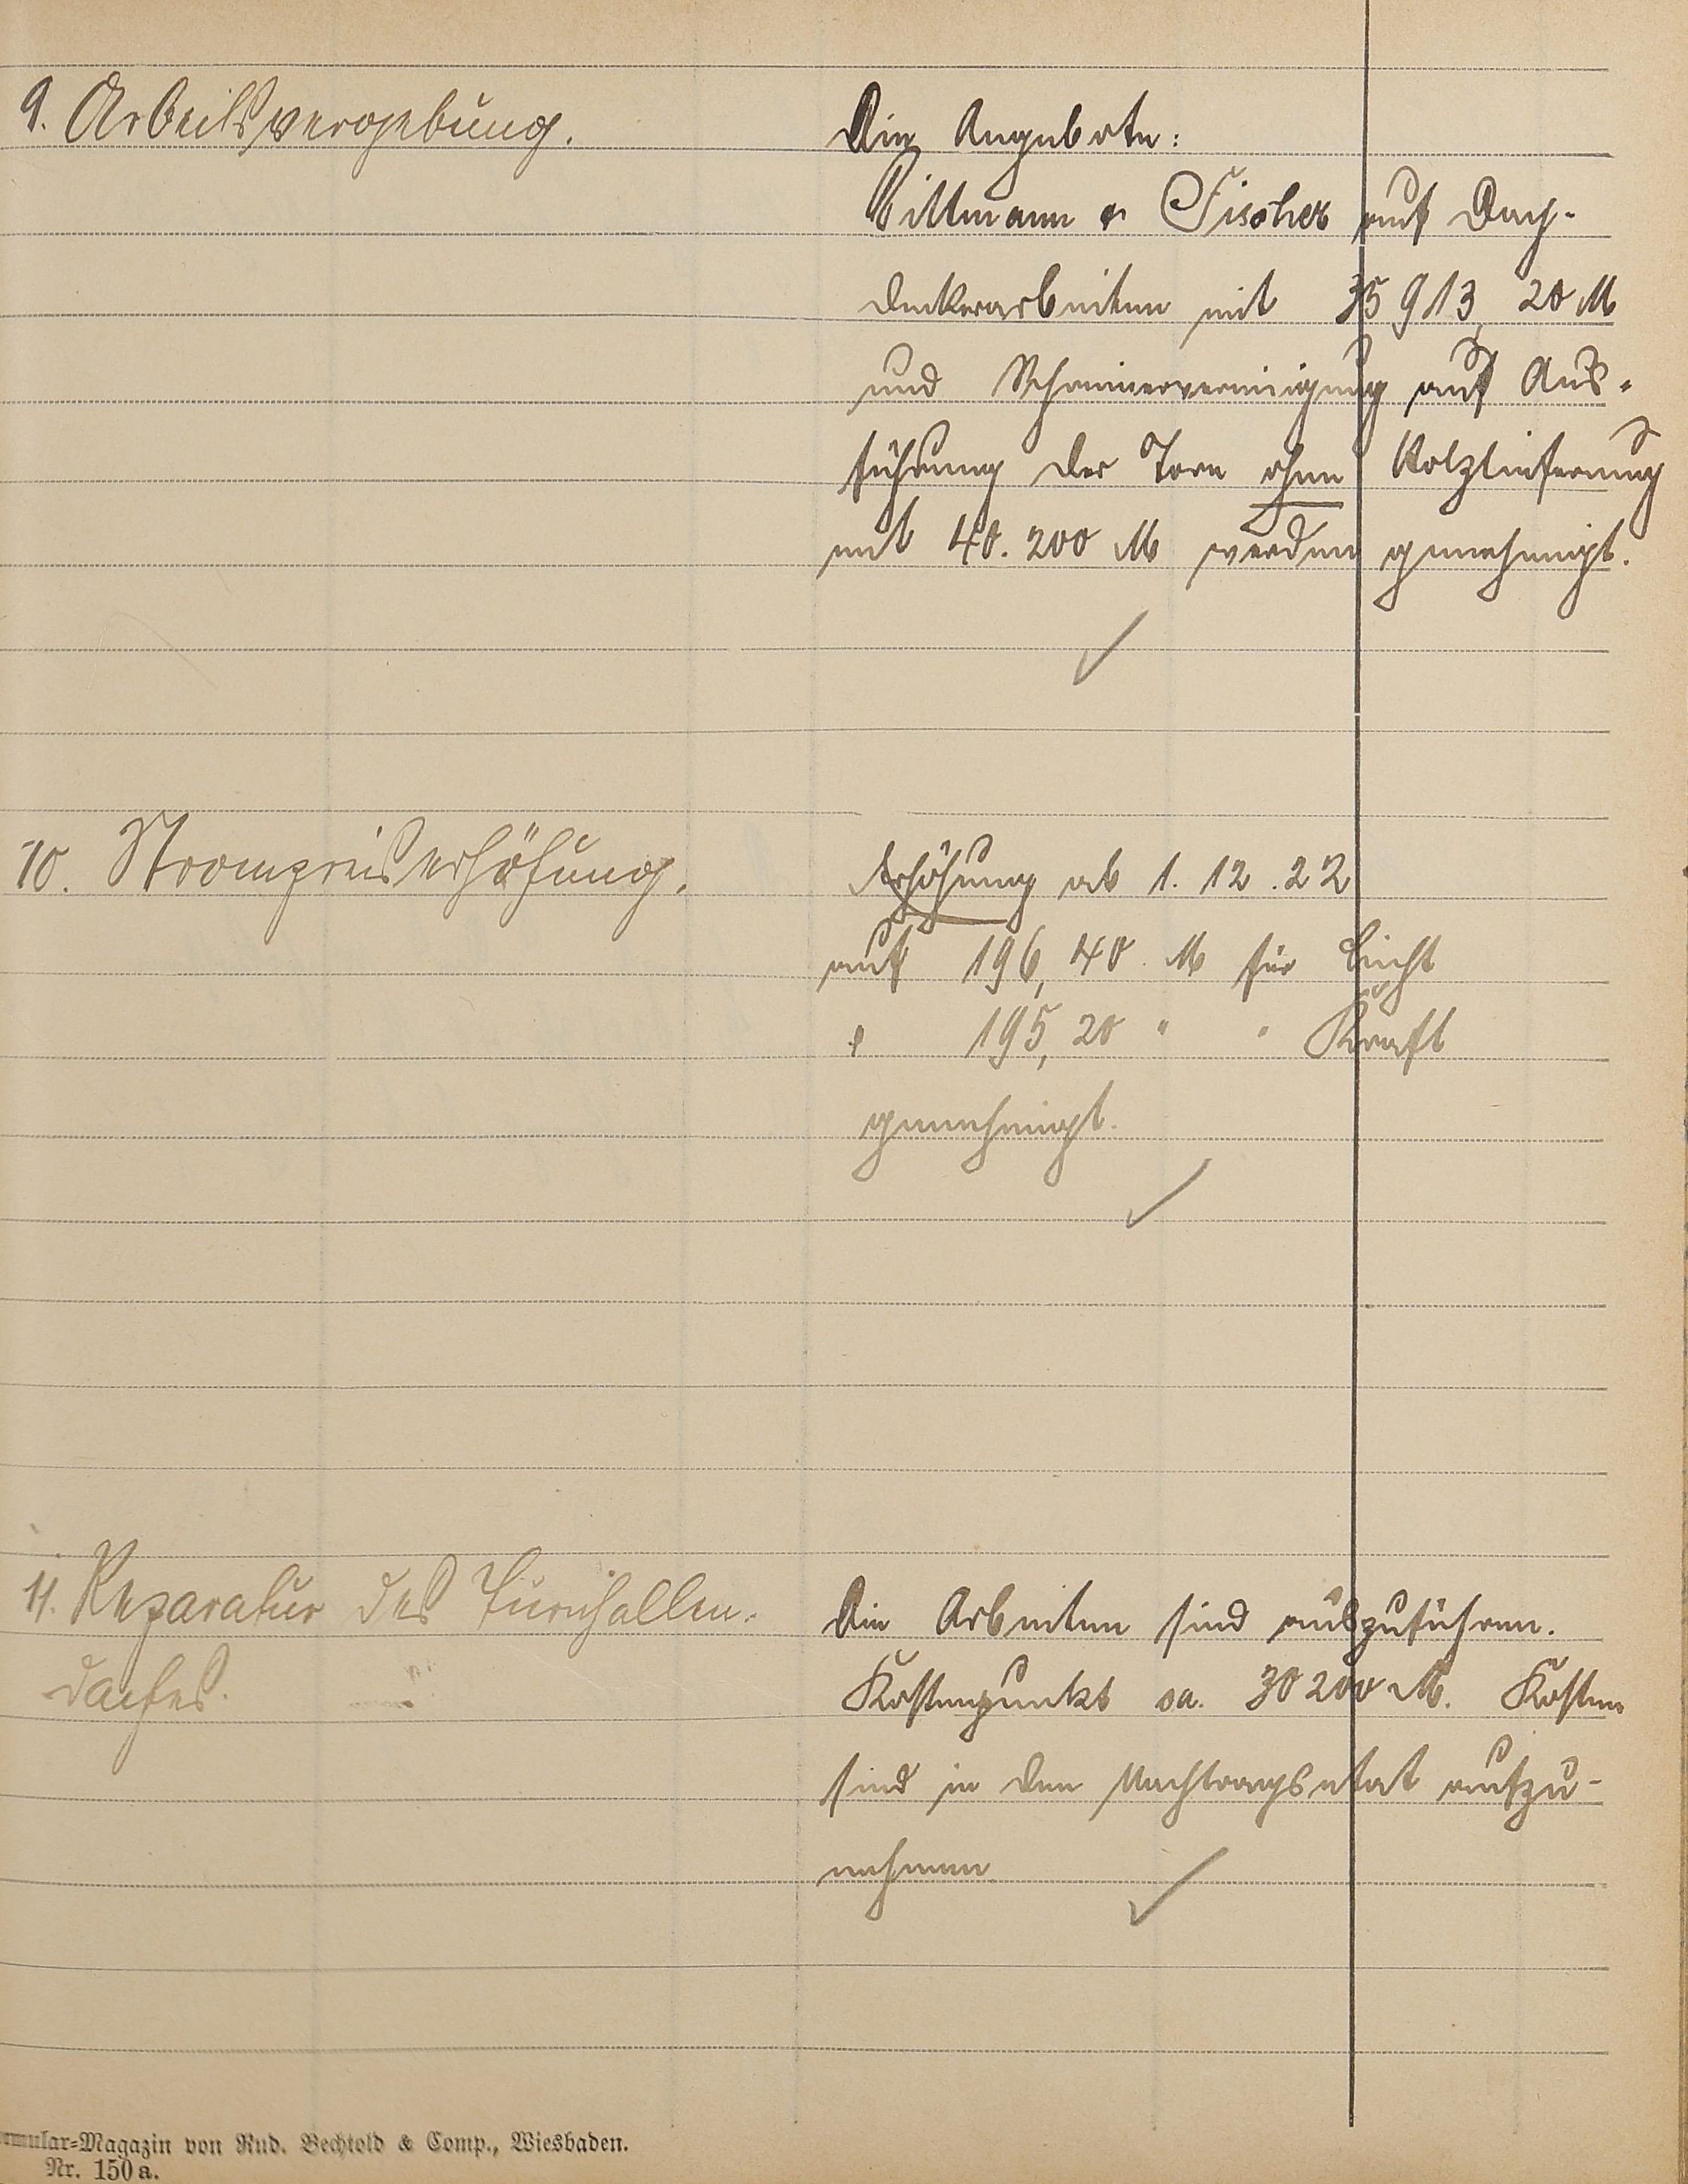 9. Arbeitsvergebung.
Die Angebote:
Wittmann & Fischer auf Dach-
deckerarbeiten mit 35 913, 20 M
und Schreinervereinigung auf Aus-
führung der Tore ohne Holzlieferung
mit 40.200 M werden genehmigt.
10. Strompreiserhöhung.
Erhöhung ab 1. 12. 22
auf 196, 40 M für Licht
" 195, 20 " " Kraft
genehmigt.
11. Reparatur des Turnhallen-
daches.
Die Arbeiten sind auszuführen.
Kostenpunkt ca. 30 200 M. Kosten
sind in den Nachtragsetat aufzu-
nehmen
rmular-Magazin von Rud. Bechtold & Comp., Wiesbaden.
Nr. 150 a.